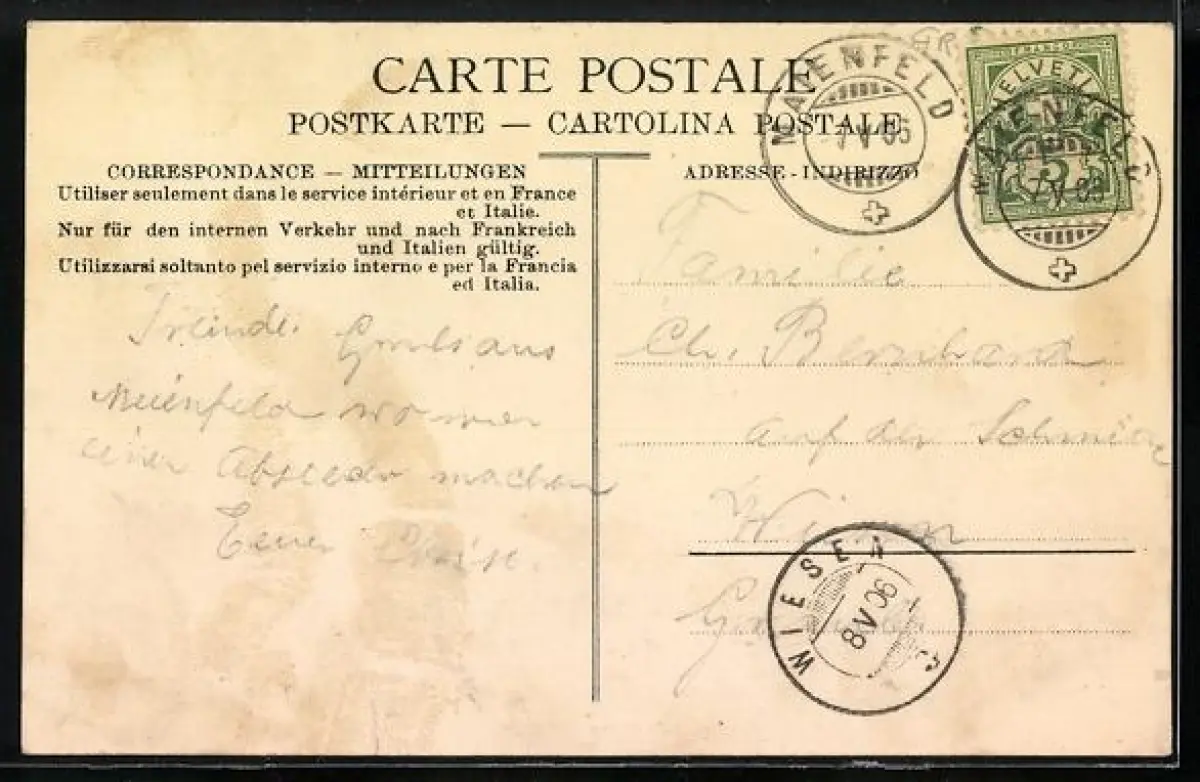 CARTE POSTALE
POSTKARTE — CARTOLINA POSTALE
CORRESPONDANCE — MITTEILUNGEN
Utiliser seulement dans le service intérieur et en France
et Italie.
Nur für den internen Verkehr und nach Frankreich
und Italien gültig.
Utilizzarsi soltanto pel servizio interno e per la Francia
ed Italia.
aus
Meienfeld wo wir
einen machen
Euer
ADRESSE - INDIRIZZO
Familie
Ch. Bernhard
auf der
Wiesen
MAIENFELD
FRANCO
HELVETIA
5
WIESEN
8 V 06